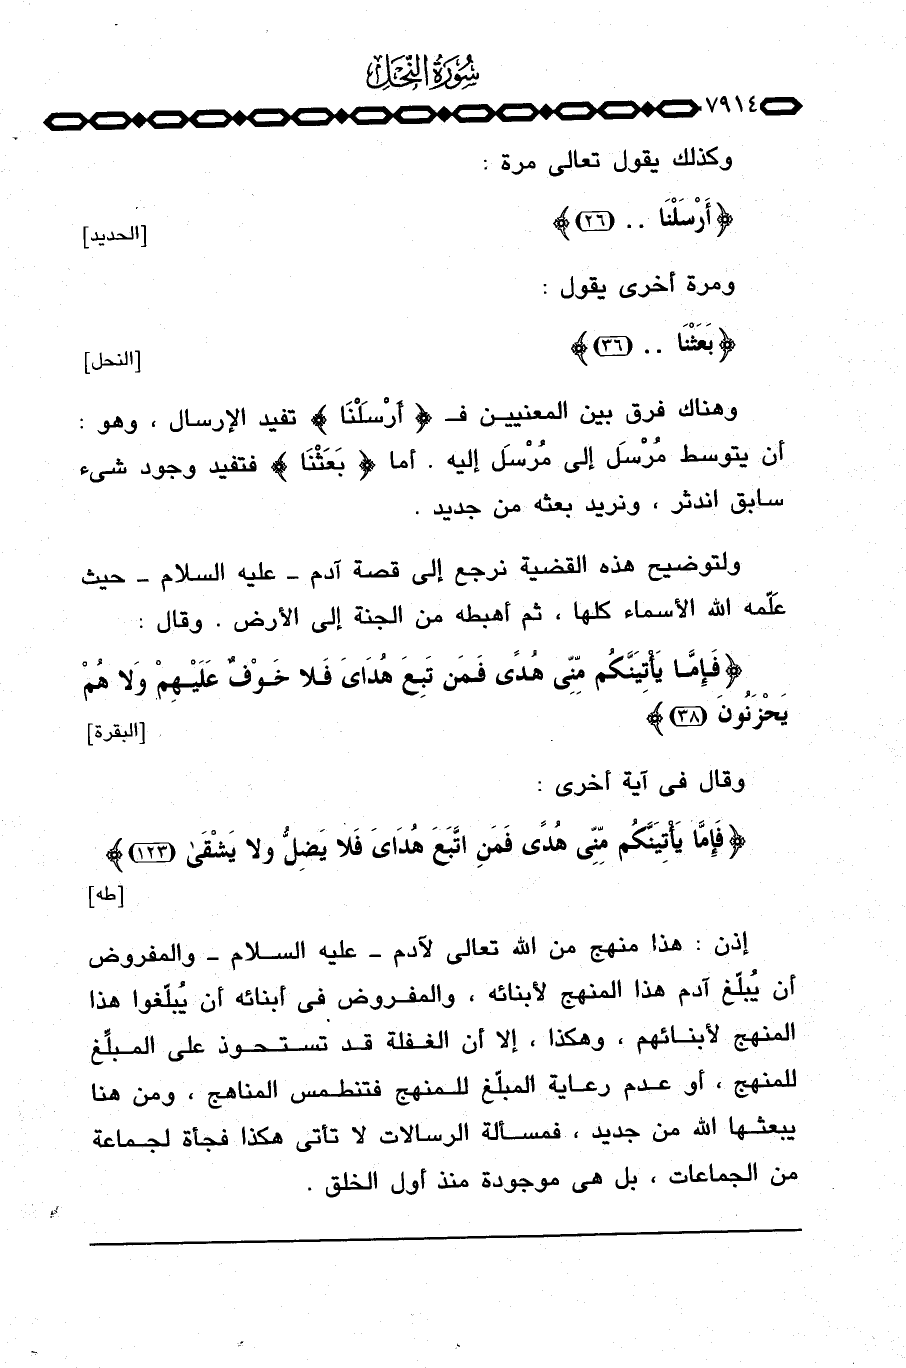 سُورَةُ النَّحْلِ
٧٩١٤
وكذلك يقول تعالى مرة :
﴿أَرْسَلْنَا .. (٢٦)﴾
[الحديد]
ومرة أخرى يقول :
﴿بَعَثْنَا .. (٣٦)﴾
[النحل]
وهناك فرق بين المعنيين فـ ﴿ أَرْسَلْنَا ﴾ تفيد الإرسال ، وهو :
أن يتوسط مُرْسَل إلى مُرْسَل إليه . أما ﴿ بَعَثْنَا ﴾ فتفيد وجود شىء
سابق اندثر ، ونريد بعثه من جديد .
ولتوضيح هذه القضية نرجع إلى قصة آدم ـ عليه السلام ـ حيث
علّمه الله الأسماء كلها ، ثم أهبطه من الجنة إلى الأرض . وقال :
﴿فَإِمَّا يَأْتِيَنَّكُم مِّنِّى هُدًى فَمَن تَبِعَ هُدَاىَ فَلا خَوْفٌ عَلَيْهِمْ وَلا هُمْ
يَحْزَنُونَ (٣٨)﴾
[البقرة]
وقال فى آية أخرى :
﴿فَإِمَّا يَأْتِيَنَّكُم مِّنِّى هُدًى فَمَنِ اتَّبَعَ هُدَاىَ فَلا يَضِلُّ ولا يَشْقَىٰ (١٢٣)﴾
[طه]
إذن : هذا منهج من الله تعالى لآدم ـ عليه السلام ـ والمفروض
أن يُبلّغ آدم هذا المنهج لأبنائه ، والمفروض فى أبنائه أن يُبلّغوا هذا
المنهج لأبنائهم ، وهكذا ، إلا أن الغفلة قد تستحوذ على المبلِّغ
للمنهج ، أو عدم رعاية المبلّغ للمنهج فتنطمس المناهج ، ومن هنا
يبعثها الله من جديد ، فمسألة الرسالات لا تأتى هكذا فجأة لجماعة
من الجماعات ، بل هى موجودة منذ أول الخلق .